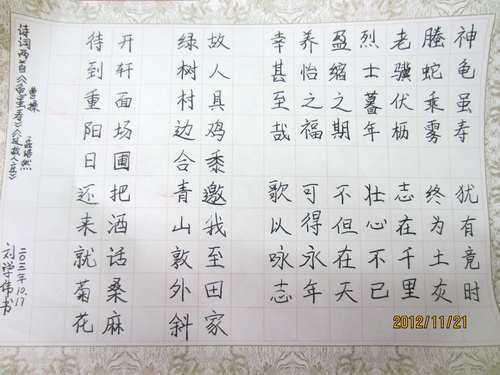 神龟虽寿 犹有竟时
腾蛇乘雾 终为土灰
老骥伏枥 志在千里
烈士暮年 壮心不已
盈缩之期 不但在天
养怡之福 可得永年
幸甚至哉 歌以咏志
故人具鸡黍 邀我至田家
绿树村边合 青山敦外斜
开轩面场圃 把酒话桑麻
待到重阳日 还来就菊花
曹操 孟浩然
诗词两首《龟虽寿》《过故人庄》
年10.17
刘学伟书
2012/11/21